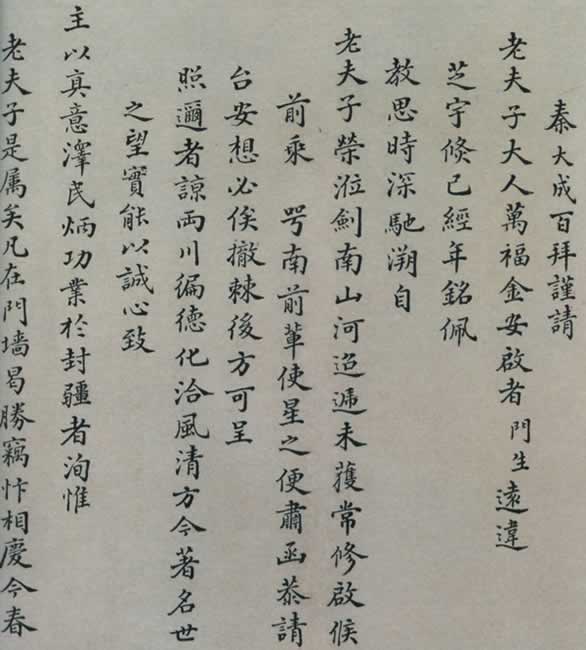 秦大成百拜謹請
老夫子大人萬福金安啟者門生遠違
芝宇倐已經年銘佩
教思時深馳溯自
老夫子榮涖劍南山河迢遞未獲常修啟候
前乘 咢南前輩使星之便肅函恭請
台安想必俟撤棘後方可呈
照邇者諒兩川徧德化洽風清方今著名世
之望實能以誠心致
主以真意澤民炳功業於封疆者洵惟
老夫子是属矣凡在門墻曷勝竊忭相慶今春